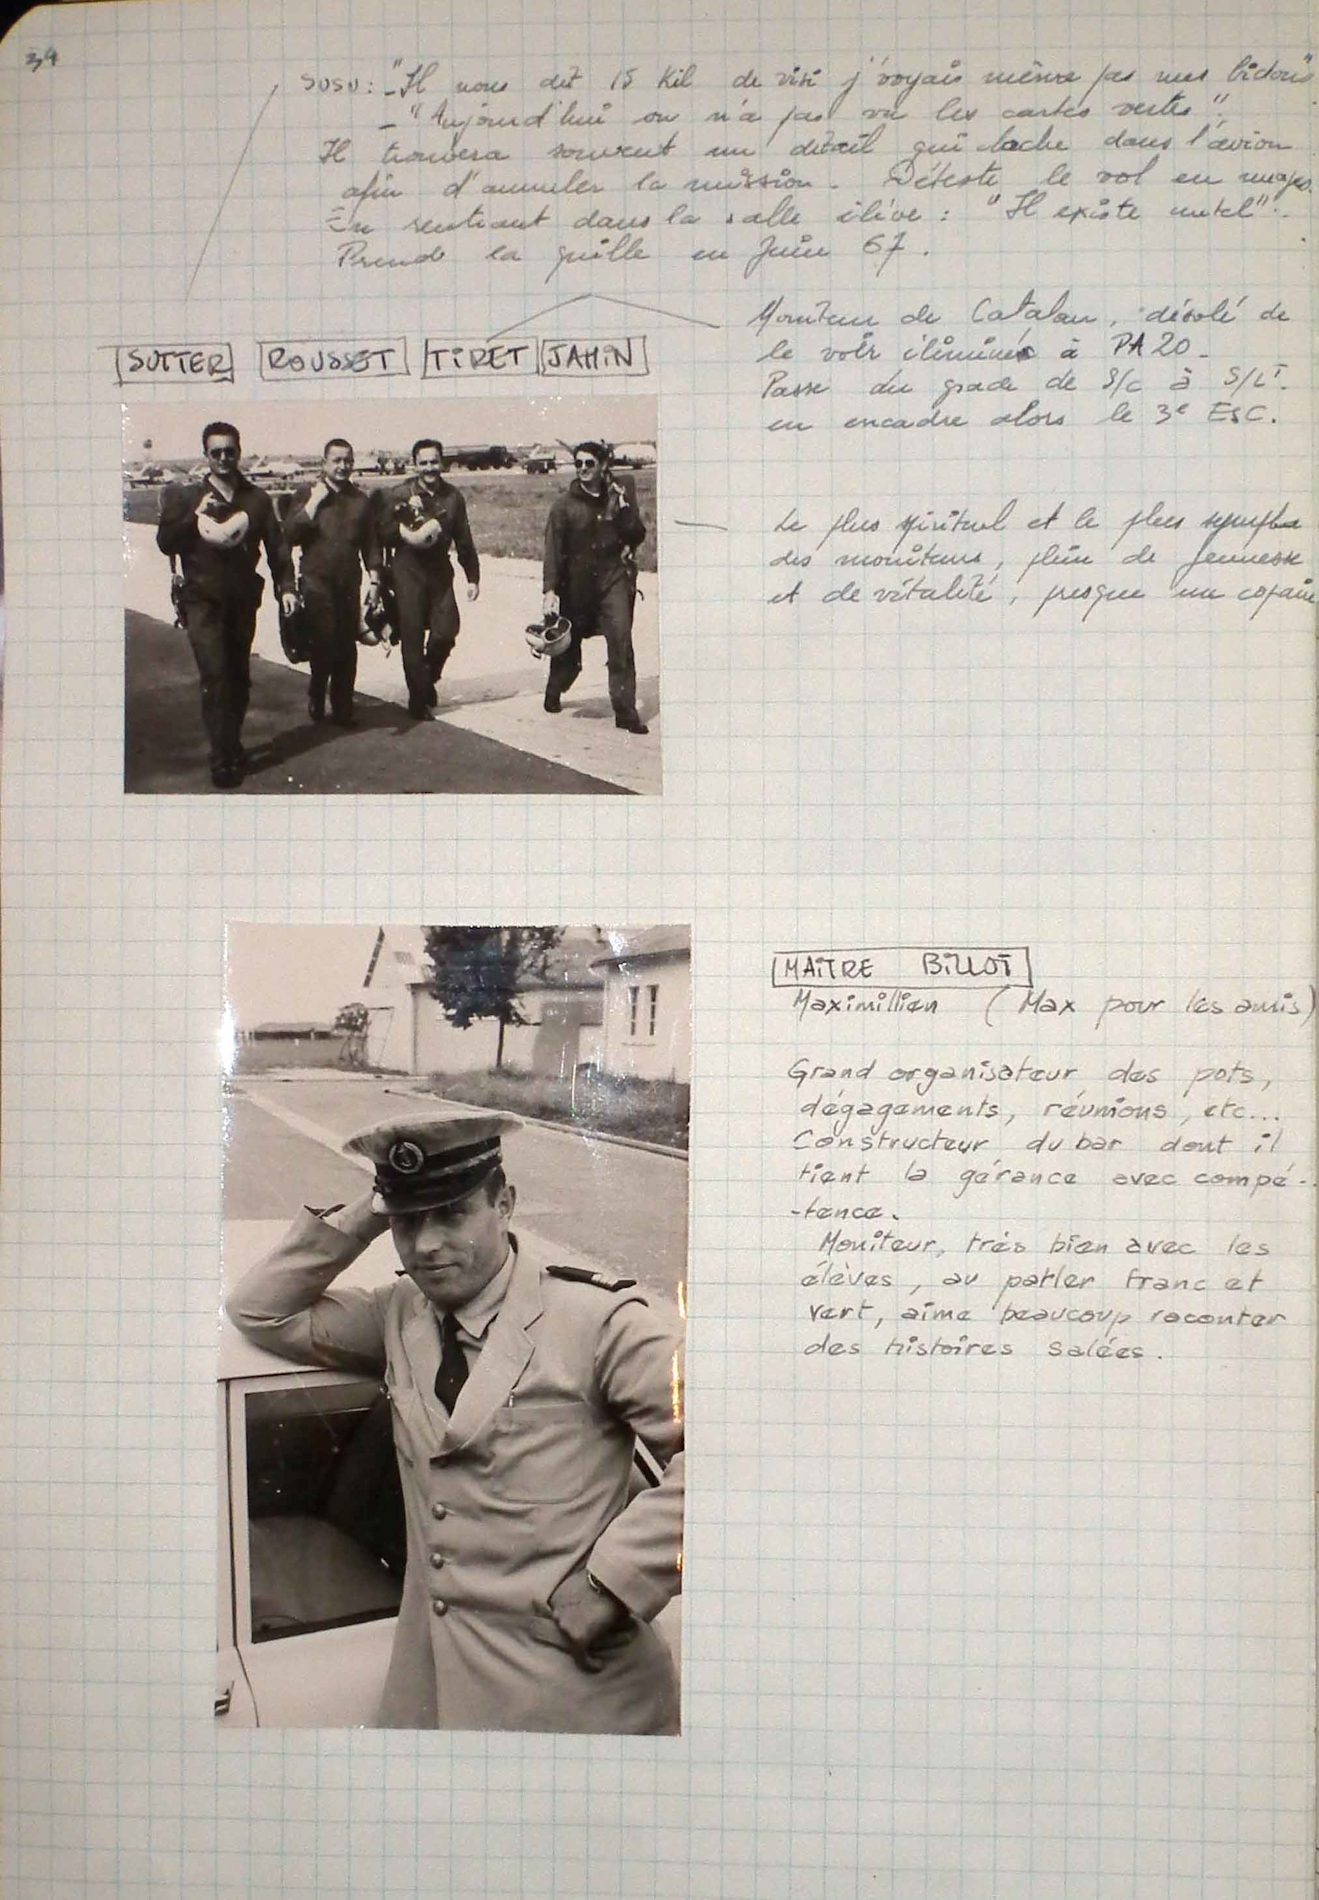 34
SUSU : - "Il nous dit 15 Kil de visi j'voyais même pas mes bidons"
- "Aujourd'hui on n'a pas vu les cartes vertes".
Il trouvera souvent un détail qui cloche dans l'avion
afin d'annuler la mission. Déteste le vol en nuages.
En rentrant dans la salle élève : "Il existe untel".
Prend la quille en Juin 67.
Moniteur de Catalan, désolé de
le voir éliminé à PA 20.
Passe du grade de S/C à S/LT.
en encadre alors le 3e ESC.
SUTTER ROUSSET TIRET JAHIN
Le plus spirituel et le plus sympha
des moniteurs, plein de jeunesse
et de vitalité, presque un copain
MAITRE BILLOT
Maximillien (Max pour les amis)
Grand organisateur des pots,
dégagements, réunions, etc...
Constructeur du bar dont il
tient la gérance avec compé-
-tence.
Moniteur, très bien avec les
élèves, au parler franc et
vert, aime beaucoup raconter
des histoires salées.